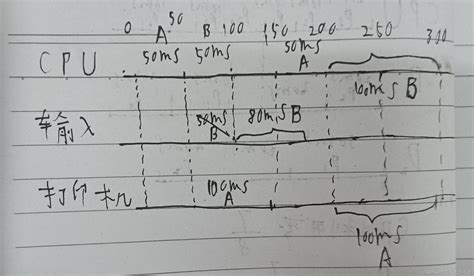 0 A 50 B 100 150 200 250 300
50ms 50ms 50ms
CPU A 100ms B
输入 50ms B 80ms B
打印机 100ms A
100ms
A